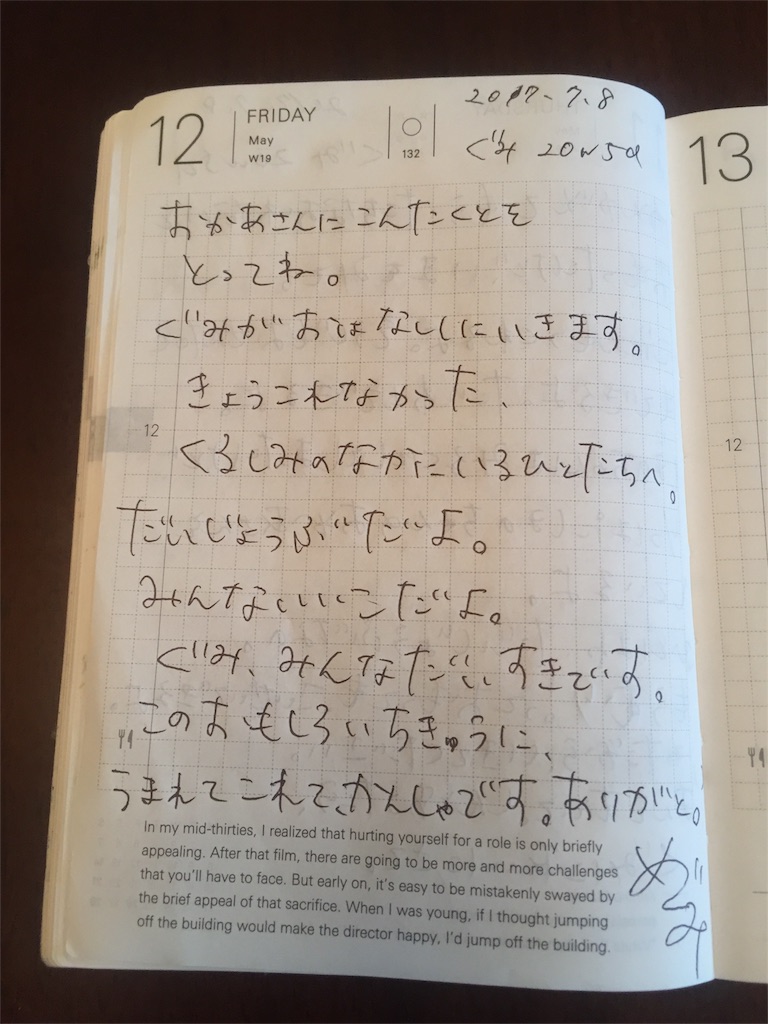 12
FRIDAY
May
W19
132
2017-7.8
ぐみ 20w5d
13
おかあさんにこんたくとを
とってね。
ぐみがおはなしにいきます。
きょうこれなかった、
12
くるしみのなかにいるひとたちへ。
12
だいじょうぶだよ。
みんないいこだよ。
ぐみ、みんなだいすきです。
このおもしろいちきゅうに、
うまれてこれて、かんしゃです。ありがと。
In my mid-thirties, I realized that hurting yourself for a role is only briefly
appealing. After that film, there are going to be more and more challenges
that you'll have to face. But early on, it's easy to be mistakenly swayed by
the brief appeal of that sacrifice. When I was young, if I thought jumping
off the building would make the director happy, I'd jump off the building.
ぐみ